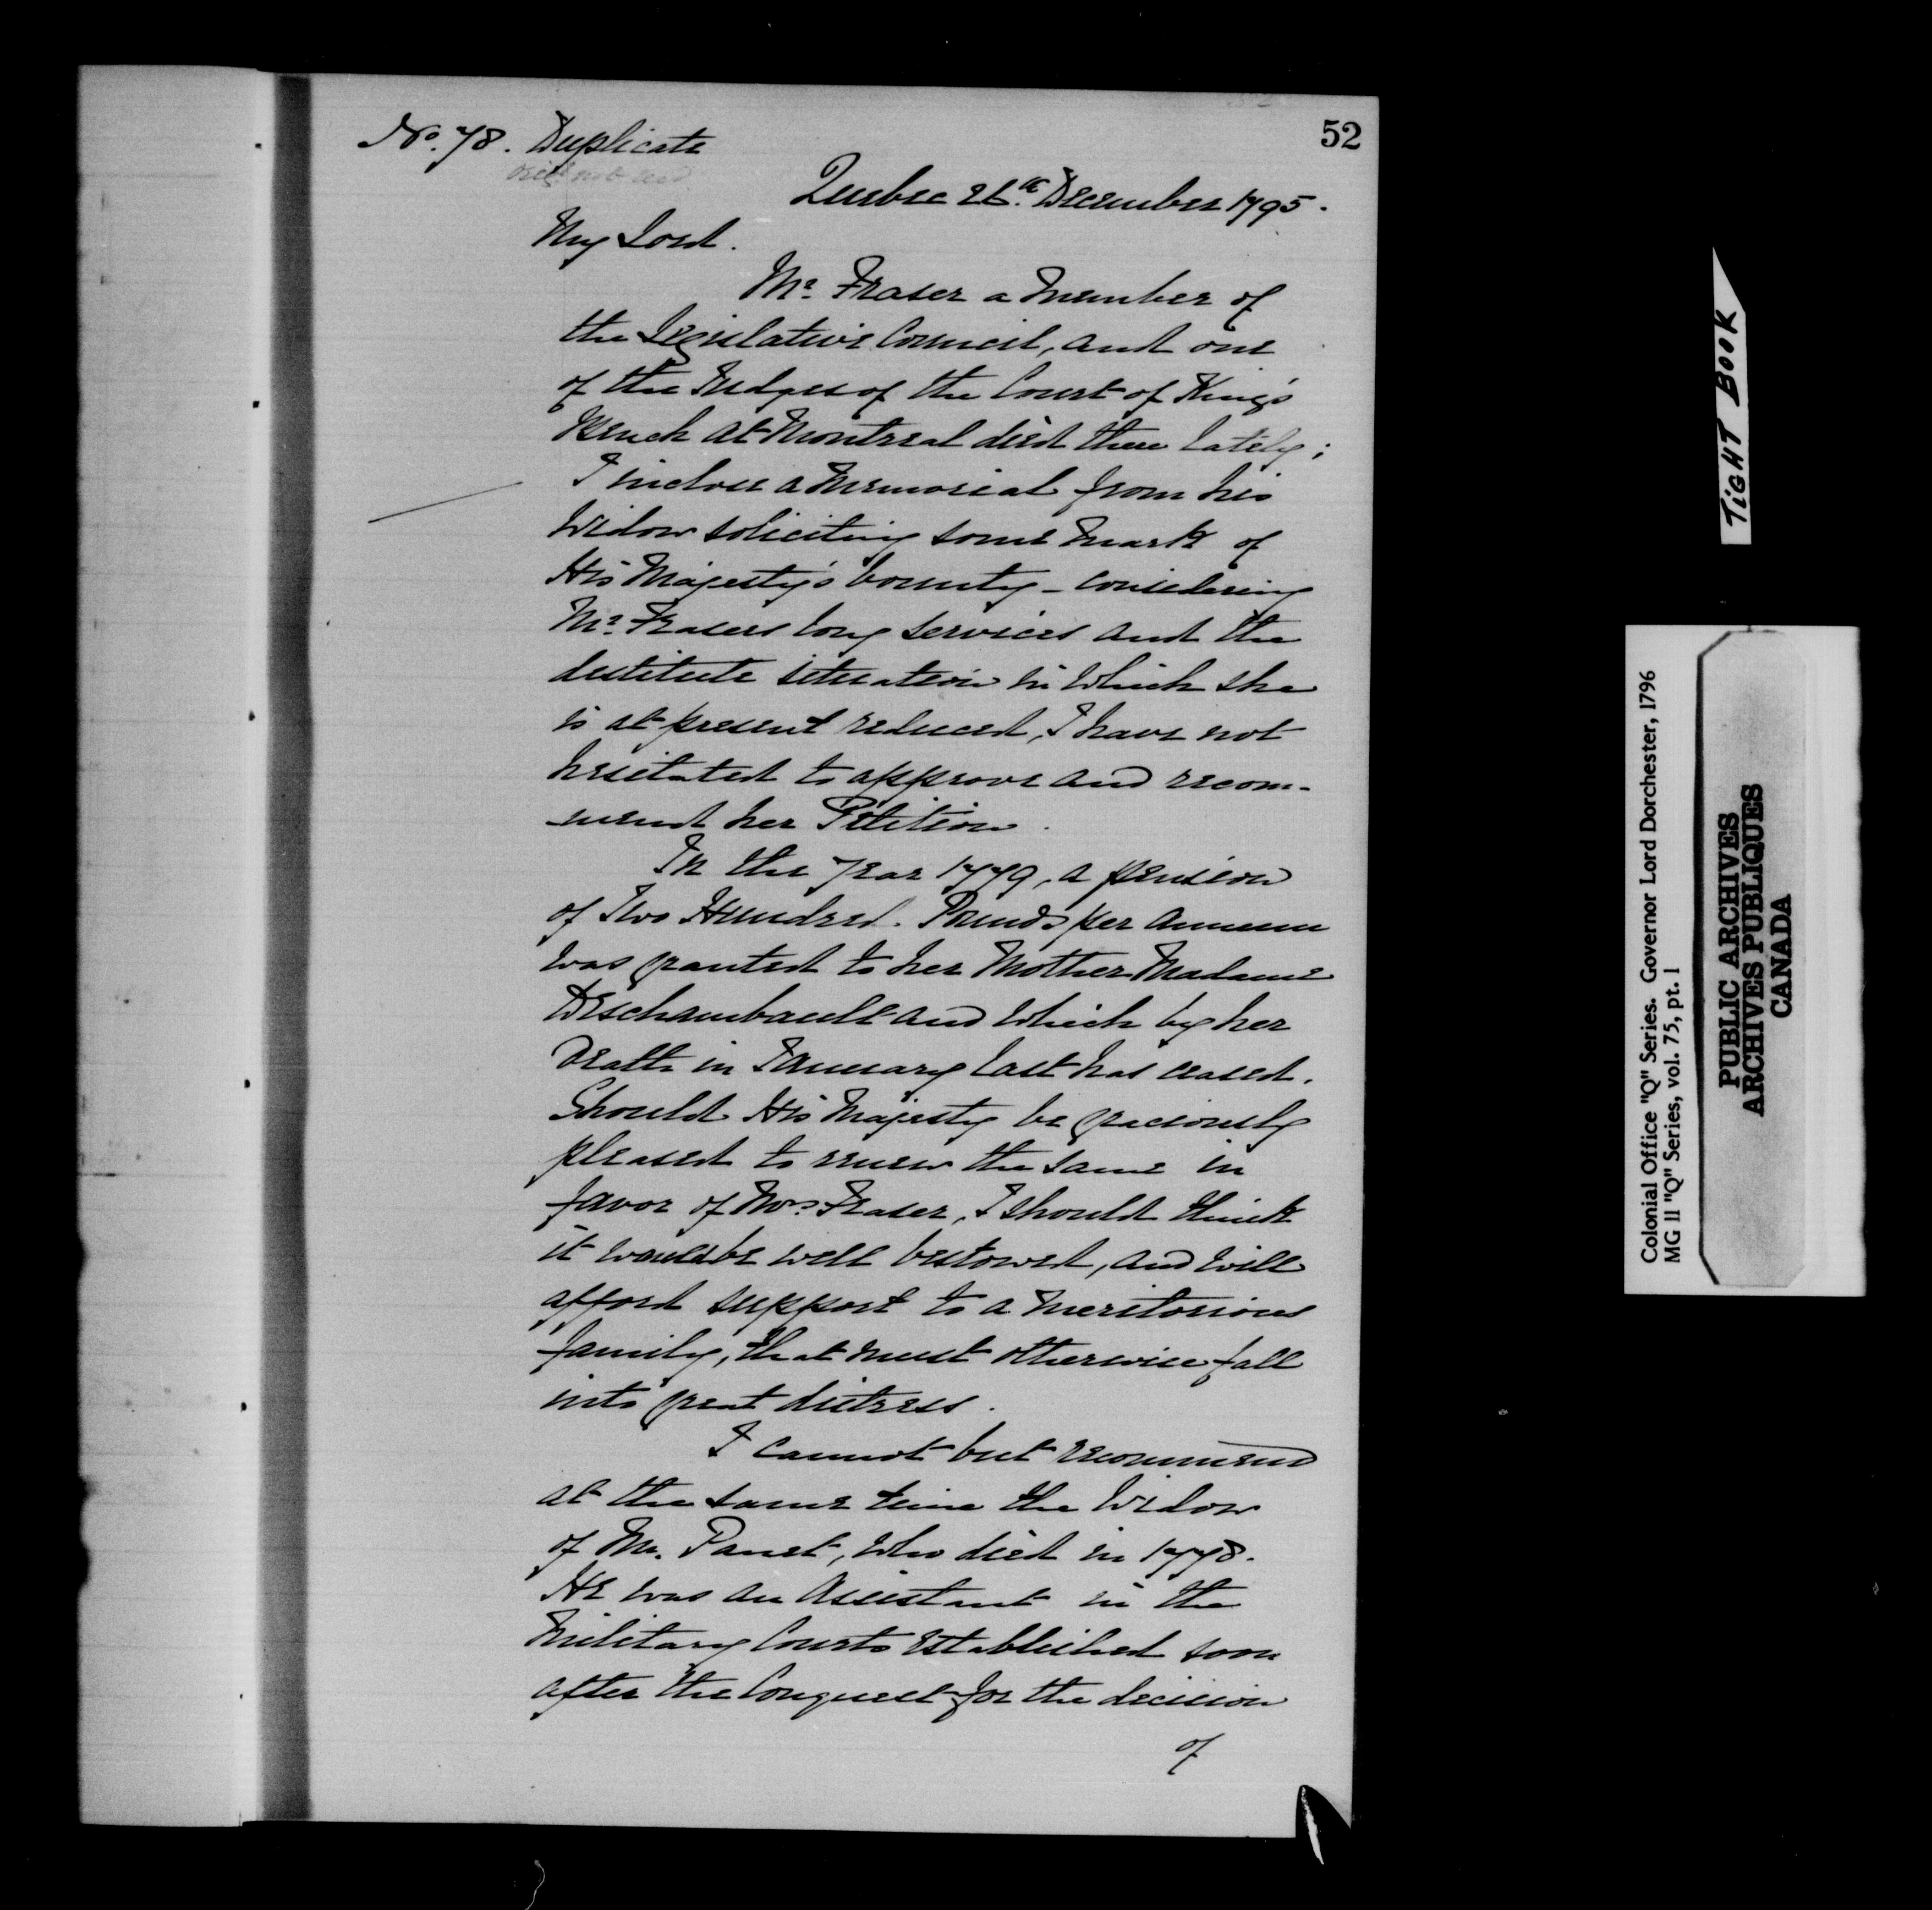 52
No. 78. Duplicate
Quebec 26th December 1795.
My Lord.
Mr. Fraser a Member of
the Legislative Council, and one
of the Judges of the Court of King's
Bench at Montreal died there lately;
I inclose a Memorial from his
Widow soliciting some mark of
His Majesty's bounty - considering
Mr. Frasers long services and the
destitute situation in which she
is at present reduced, I have not
hesitated to approve and recom-
-mend her Petition.
In the year 1779, a pension
of Two Hundred. Pounds per annum
was granted to her Mother Madame
Deschambault and which by her
Death in January last has ceased.
Should His Majesty be graciously
pleased to renew the same in
favor of Mrs. Fraser, I should think
it would be well bestowed, and will
afford support to a meritorious
family, that must otherwise fall
into great distress.
I cannot but recommend
at the same time the Widow
of Mr. Panet, who died in 1778.
He was an Assistant in the
Military Courts established soon
after the Conquest for the decision
of
TIGHT BOOK
Colonial Office "Q" Series. Governor Lord Dorchester, 1796
MG 11 "Q" Series, vol. 75, pt. 1
PUBLIC ARCHIVES
ARCHIVES PUBLIQUES
CANADA